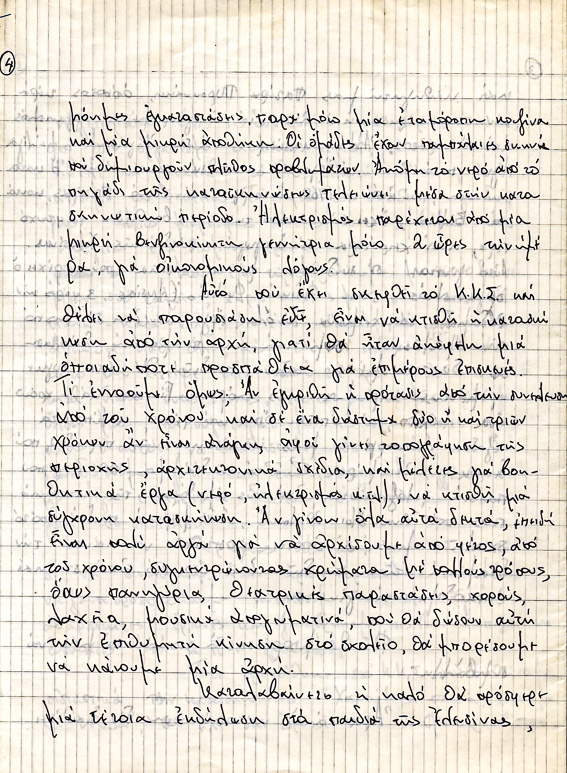 4
μόνιμες ἐγκαταστάσεις, παρά μόνο μία ἑτοιμόρροπη κουζίνα
καί μία μικρή ἀποθήκη. Οἱ ὁμάδες ἔχουν παμπάλαιες σκηνές
πού δημιουργοῦν πλῆθος προβλημάτων. Ἀκόμη τό νερό ἀπό τό
πηγάδι τῆς κατασκηνώσεως τελειώνει μέσα στήν κατα
σκηνωτική περίοδο. Ἠλεκτρισμός παρέχεται ἀπό μία
μικρή βενζινοκίνητη γεννήτρια μόνο 2 ὧρες τήν ἡμέ
ρα γιά οἰκονομικούς λόγους.
Αὐτό πού ἔχει σκεφθῆ τό Κ.Κ.Σ καί
θέλει νά παρουσιάση ἐδῶ εἶναι νά κτισθῆ ἡ κατασκή
νωση ἀπό τήν ἀρχή, γιατί θά ἦταν ἀνώφελη μιά
ὁποιαδήποτε προσπάθεια γιά ἐπιμέρους ἐπισκευές.
Τί ἐννοοῦμε ὅμως; Ἄν ἐγκριθῆ ἡ πρότασις ἀπό τήν συνέλευση
ἀπό τοῦ χρόνου καί σέ ἕνα διάστημα δύο ἤ καί τριῶν
χρόνων ἄν εἶναι ἀνάγκη, ἀφοῦ γίνει τοπογράφηση τῆς
περιοχῆς, ἀρχιτεκτονικά σχέδια, καί μελέτες γιά βοη-
θητικά ἔργα (νερό, ἠλεκτρισμός κ.τ.λ), νά κτισθῆ μιά
σύγχρονη κατασκήνωση. Ἄν γίνουν ὅλα αὐτά δεκτά, ἐπειδή
εἶναι πολύ ἀργά γιά νά ἀρχίσουμε ἀπό φέτος, ἀπό
τοῦ χρόνου, συγκεντρώνοντας χρήματα μέ πολλούς τρόπους,
ὅπως πανηγύρια, θεατρικές παραστάσεις, χορούς,
λαχεῖα, μουσικά ἀπογευματινά, πού θά δώσουν αὐτή
τήν ἐπιθυμητή κίνηση στό σχολεῖο, θά μπορέσουμε
νά κάνουμε μία ἀρχή.
Καταλαβαίνετε τί καλό θά πρόσφερε
μιά τέτοια ἐκδήλωση στά παιδιά τῆς Ἐλευσίνας,